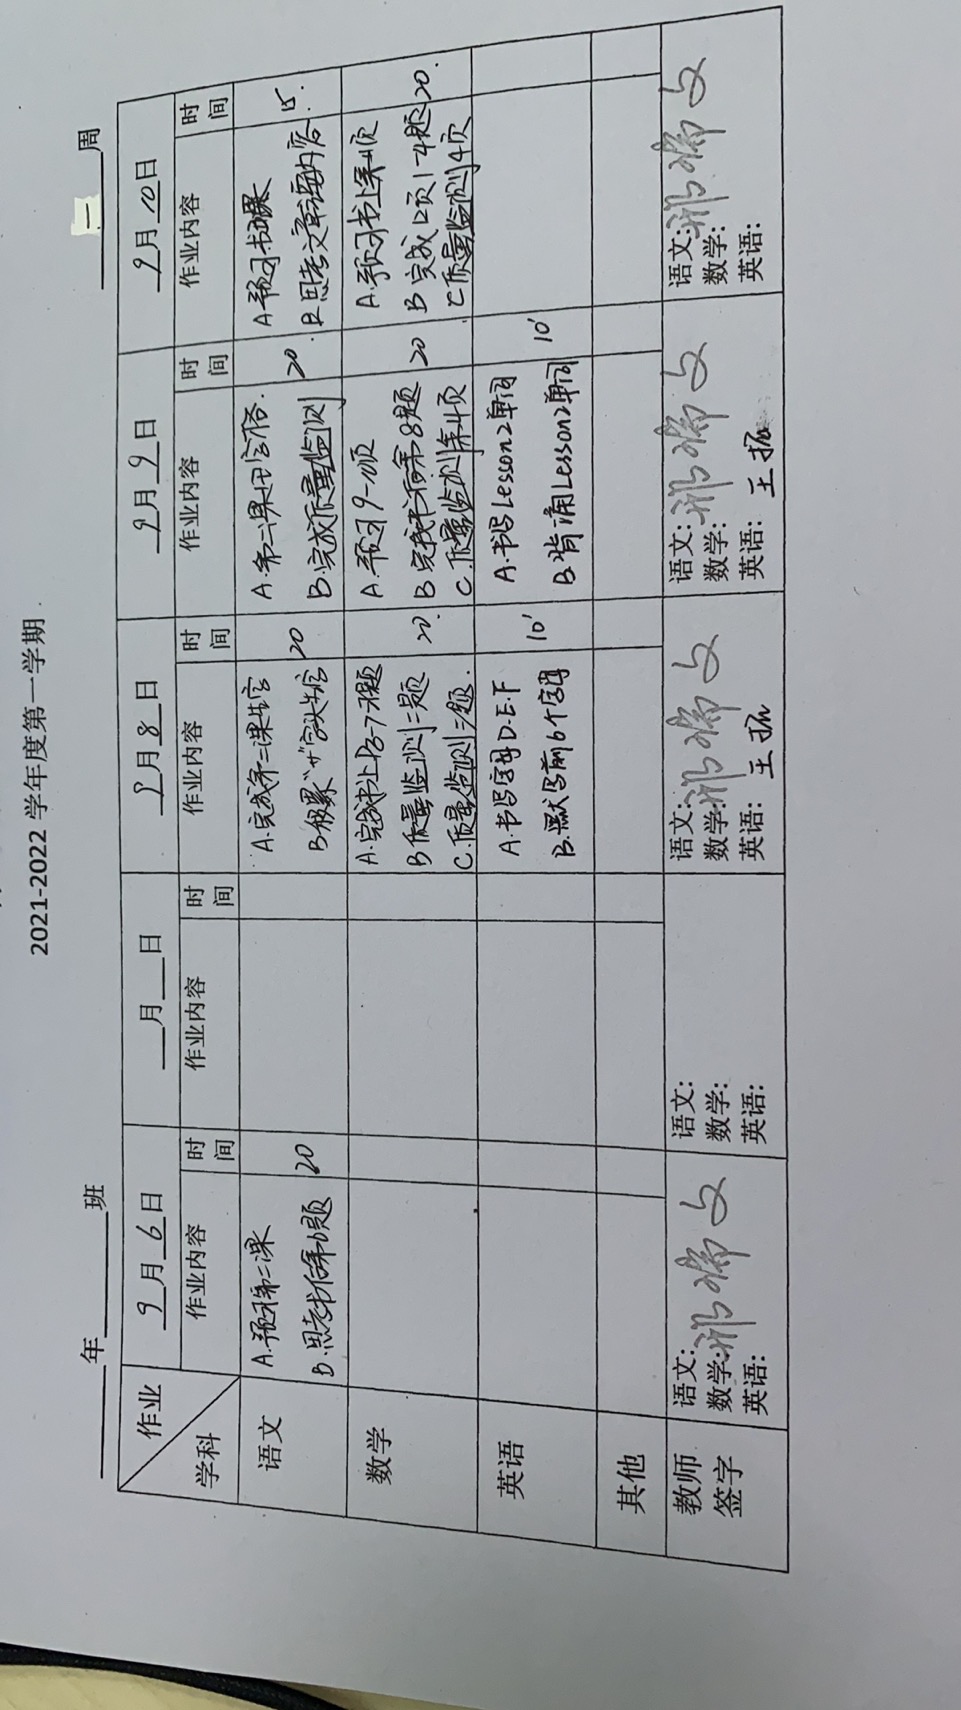 2021-2022 学年度第一学期
___年___班 一 周
作业 9月6日 ___月___日 9月8日 9月9日 9月10日
学科 作业内容 时间 作业内容 时间 作业内容 时间 作业内容 时间 作业内容 时间
语文
A.预习第二课
B.思考书后第6题
20
A.完成第二课
20
A.第二课田字格.
B.完成质量监测
20.
A 预习
B 思考文章主要内容
15.
数学
A.完成书上
B 质量监测二题
C.质量监测二题.
20.
A.预习9-10页
B 完成书后第8题
C.质量监测第4页
20
A.预习书上第
B 完成12页1-4题
C 质量监测4页
20.
英语
A.书写字母D.E.F
B.默写前6个字母
10'
A.书写Lesson2单词
B.背诵Lesson2单词
10'
其他
教师签字
语文:
数学:
英语:
语文:
数学:
英语:
语文:
数学:
英语: 王
语文:
数学:
英语: 王
语文:
数学:
英语: